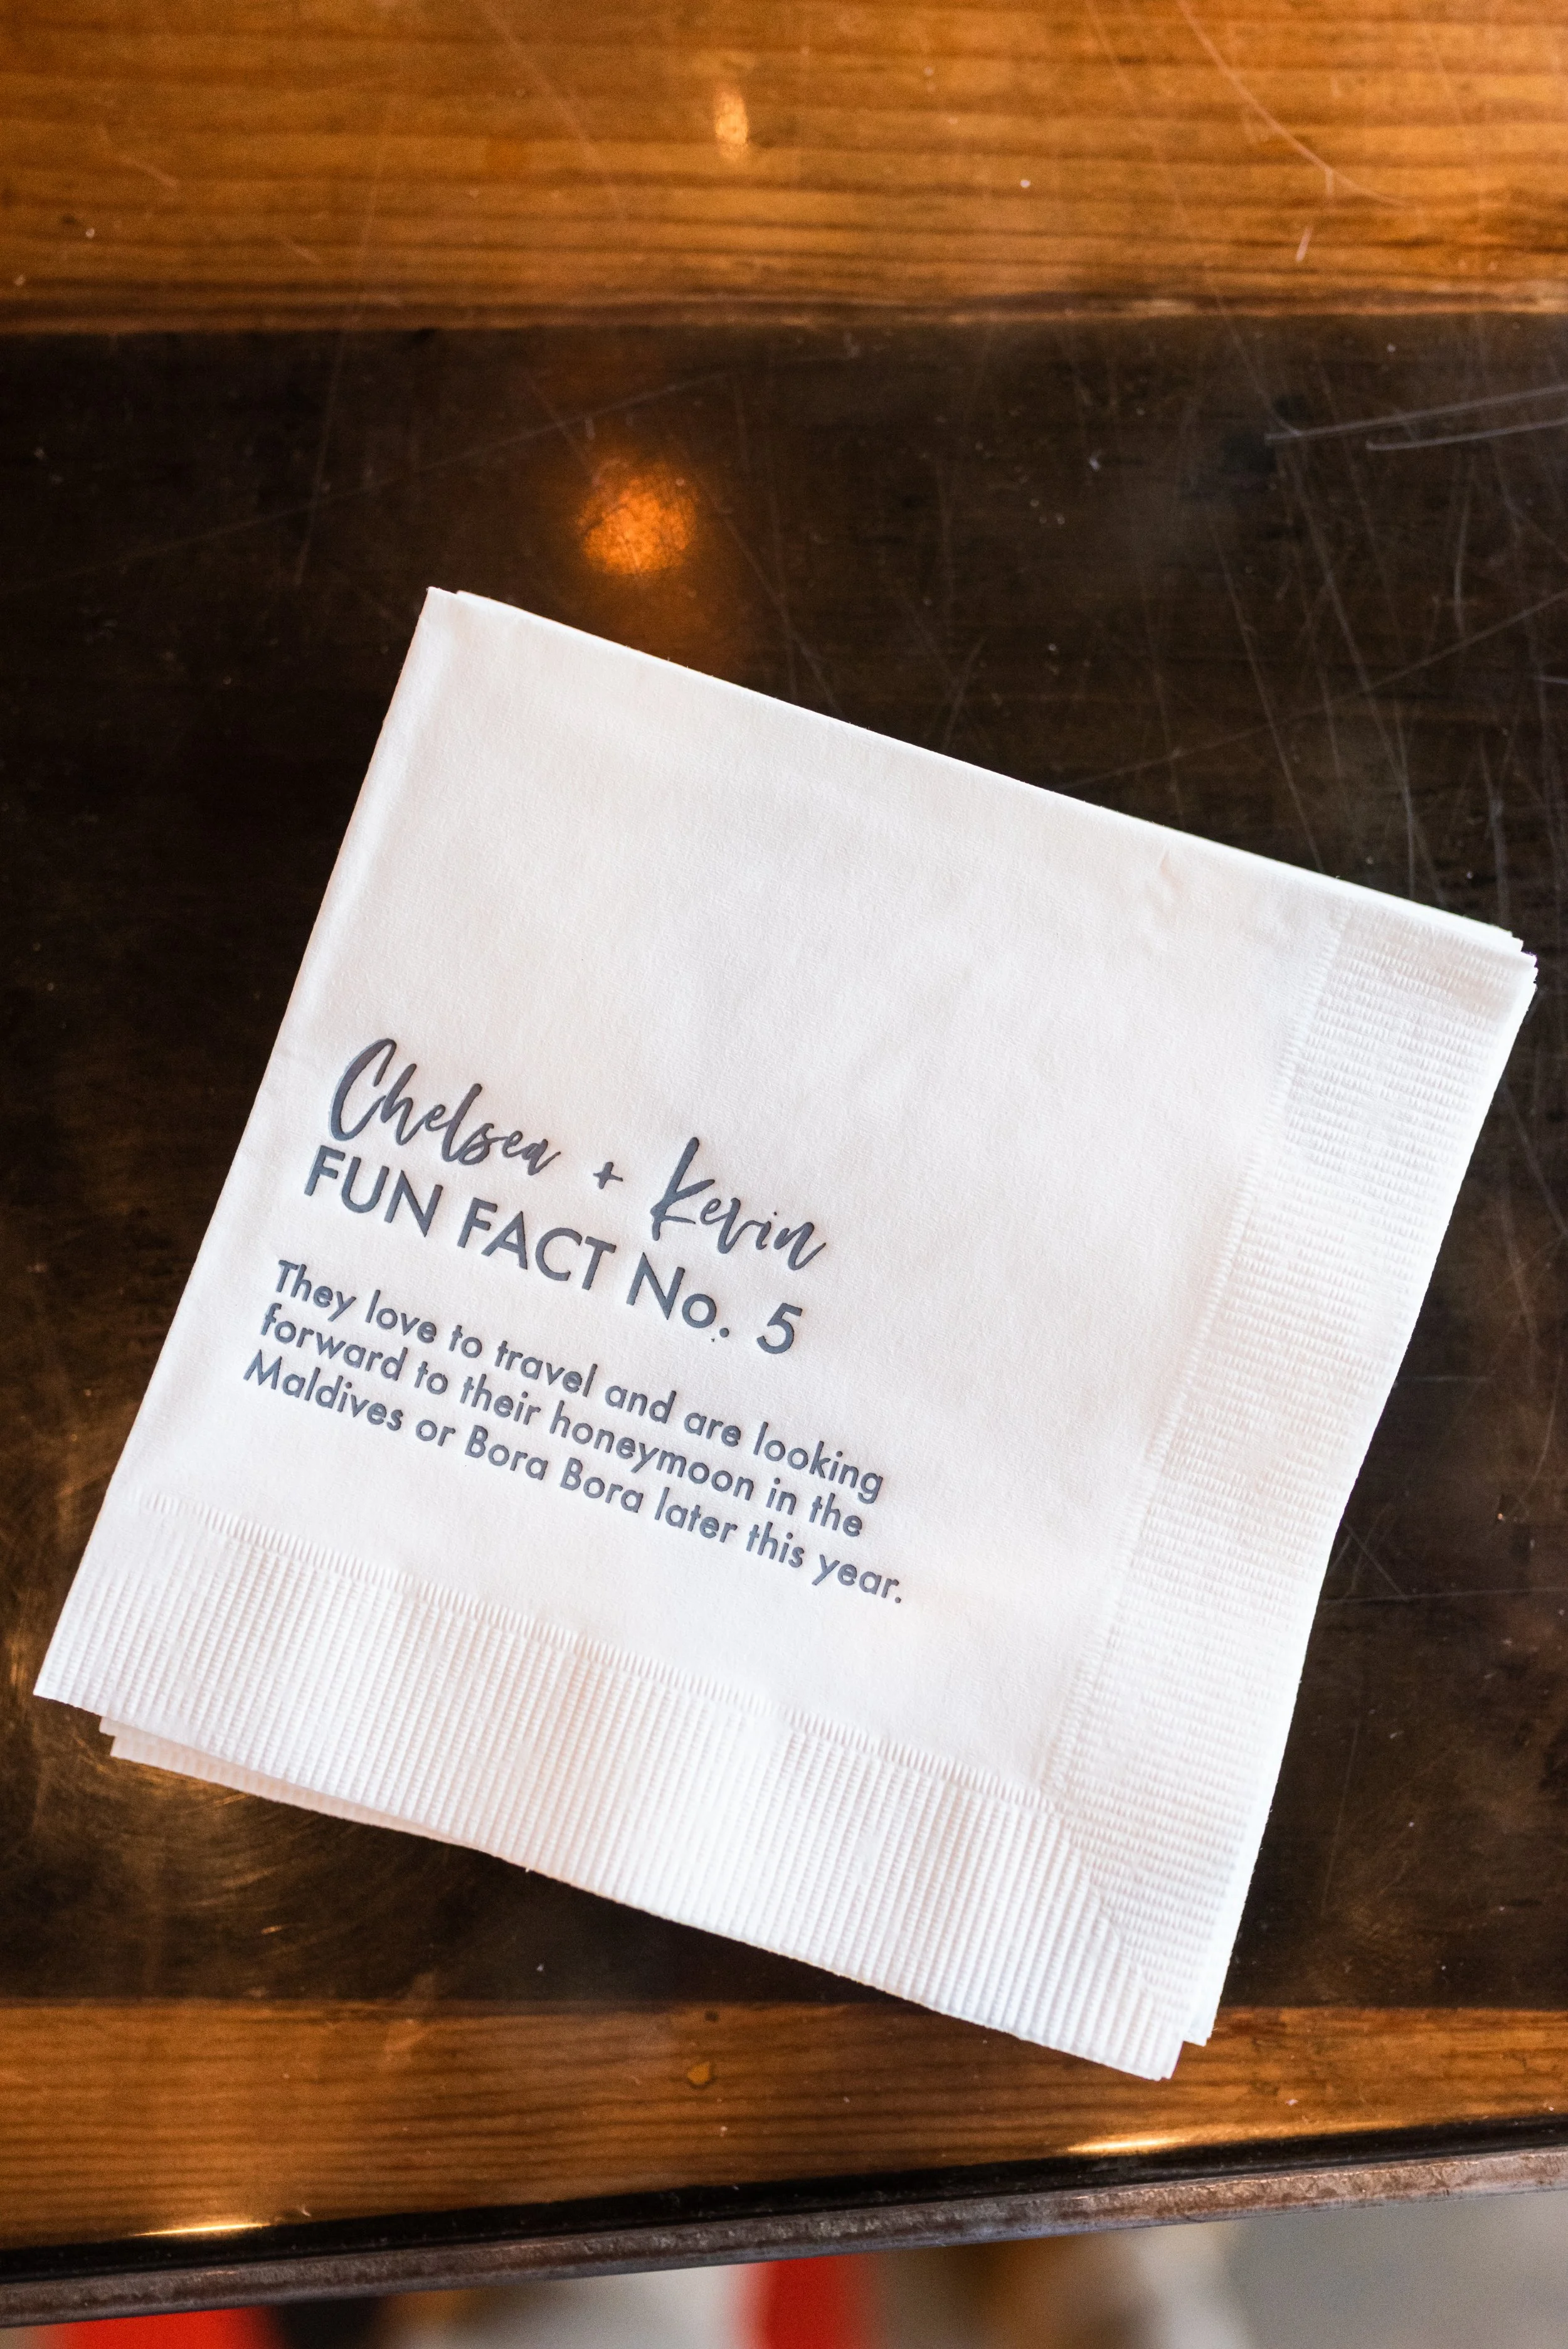 Chelsea + Kevin
FUN FACT No. 5
They love to travel and are looking
forward to their honeymoon in the
Maldives or Bora Bora later this year.